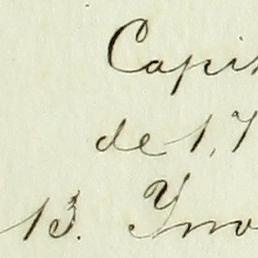 Capi
de 1,7
13. Ynv